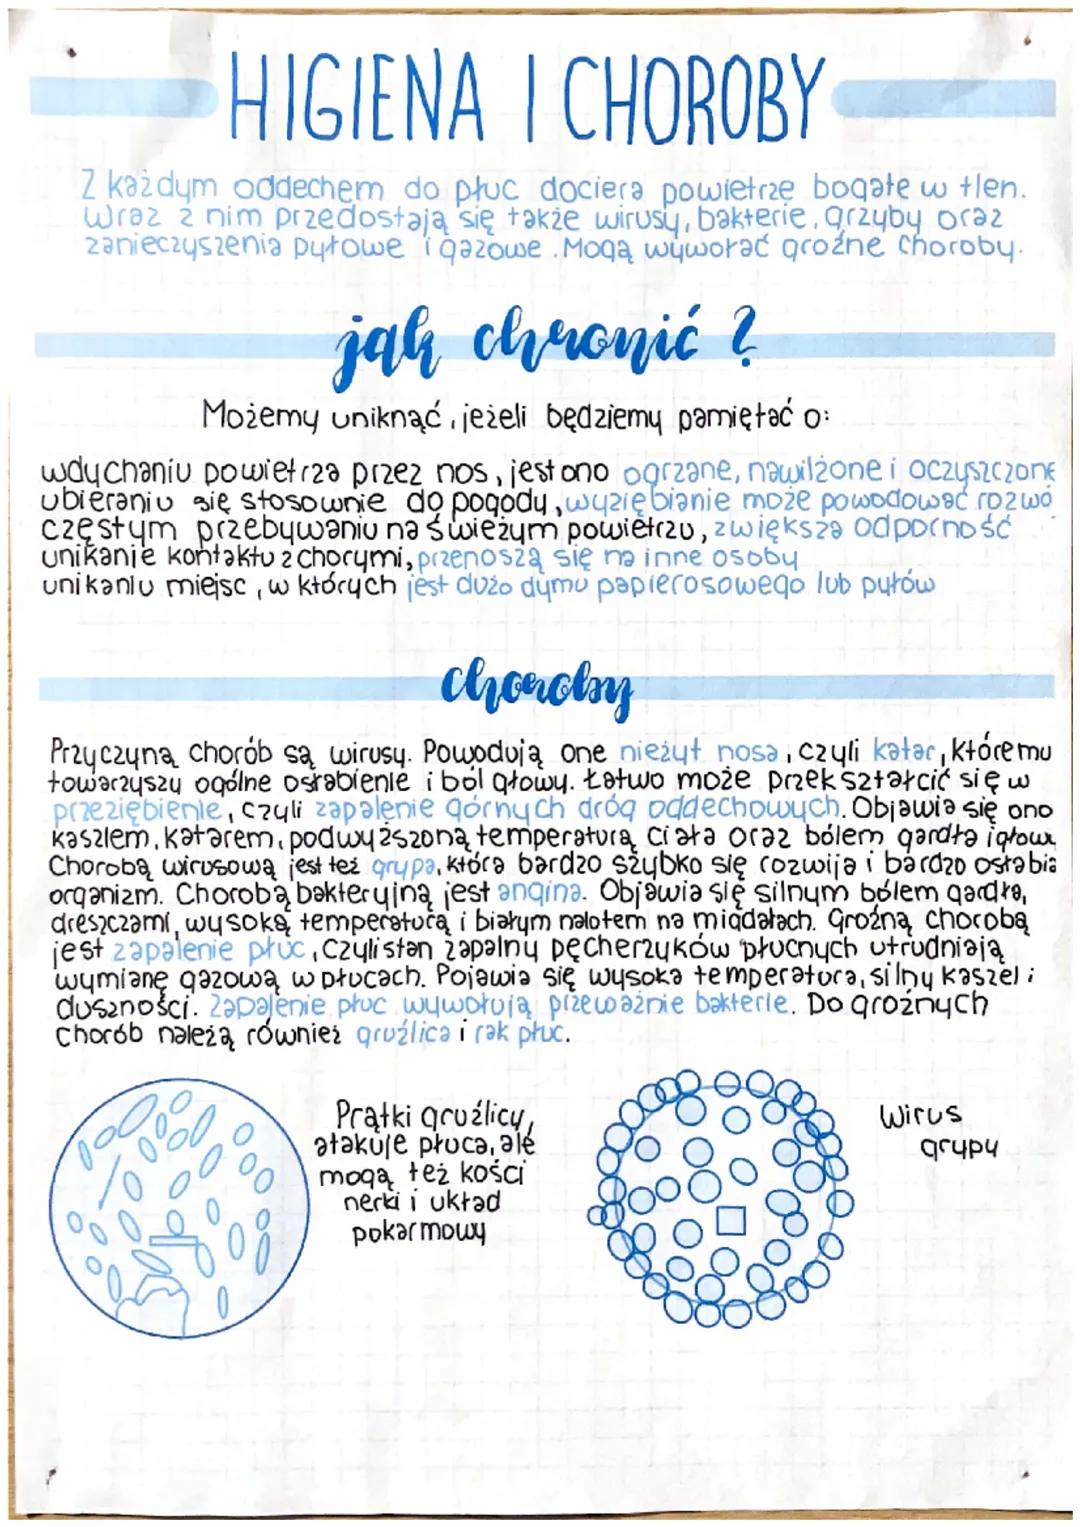 HIGIENA I CHOROBY
Z każdym oddechem do płuc dociera powietrze bogate w tlen.
Wraz z nim przedostają się także wirusy, bakterie, grzyby oraz
zanieczyszenia pyłowe i gazowe. Mogą wywołać groźne choroby.
jak chronić?
Możemy uniknąć, jeżeli będziemy pamiętać o:
wdychaniu powietrza przez nos, jest ono ogrzane, nawilżone i oczyszczone
ubieraniu się stosownie do pogody, wyziębianie może powodować rozwó
częstym przebywaniu na świeżym powietrzu, zwiększa odporność
unikanie kontaktu z chorymi, przenoszą się na inne osoby
unikaniu miejsc, w których jest dużo dymu papierosowego lub pyłów
choroby
Przyczyną chorób są wirusy. Powodują one nieżyt nosa, czyli katar, któremu
towarzyszy ogólne osłabienie i ból głowy. Łatwo może przekształcić się w
przeziębienie, czyli zapalenie górnych dróg oddechowych. Objawia się ono
kaszlem, katarem, podwyższoną temperaturą ciała oraz bólem gardła i głowy
Chorobą wirusową jest też grypa, która bardzo szybko się rozwija i bardzo osłabia
organizm. Chorobą bakteryjną jest angina. Objawia się silnym bólem gardła,
dreszczami, wysoką temperaturą i białym nalotem na migdałach. Groźną chorobą
jest zapalenie płuc, czyli stan zapalny pęcherzyków płucnych utrudniają
wymianę gazową w płucach. Pojawia się wysoka temperatura, silny kaszel i
duszności. Zapalenie płuc wywołują przeważnie bakterie. Do groźnych
chorób należą również gruźlica i rak płuc.
Prątki gruźlicy,
atakuje płuca, ale
mogą też kości
nerki i układ
pokarmowy
Wirus
grypy